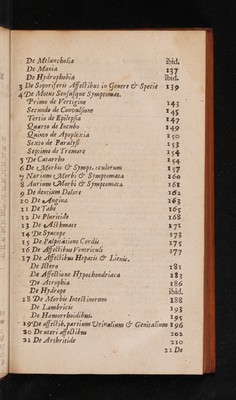 De Melancholia ibid.
De Mania 137
De Hydrophobia ibid.
3 De Soporiferis Affectibus in Genere & Specie 139
4 De Motus Sensusque Symptomat.
Primo de Vertigine 143
Secundo de Convulsione 145
Tertio de Epilepsia 147
Quarto de Incubo 149
Quinto de Apoplexia 150
Sexto de Paralysi 153
Septimo de Tremore 154
5 De Catarrho 154
6 De Morbis & Sympt. oculorum 157
7 Narium Morbi & Symptomata 160
8 Aurium Morbi & Symptomata 161
9 De dentium Dolore 162
10 De Angina 163
11 De Tabe 165
12 De Pluritide 168
13 De Asthmate 171
14 De Syncope 173
15 De Palpitatione Cordis 175
16 De Affectibus Ventriculi 177
17 De Affectibus Hepatis & Lienis.
De Ictero 181
De Affectione Hypochondriaca 183
De Atrophia 186
De Hydrope ibid.
18 De Morbis Intestinorum 188
De Lumbricis 193
De Hæmorrhoidibus. 195
19 De affectib. partium Urinalium & Genitalium 196
20 De uteri affectibus 202
21 De Arthritide 210
22 De